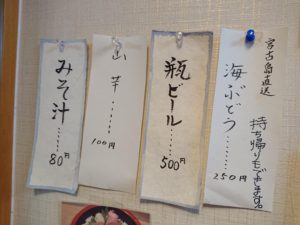 宮古島直送
海ぶどう……
250円
持ち帰りもできます。
瓶ビール……
500円
山芋……
100円
みそ汁……
80円